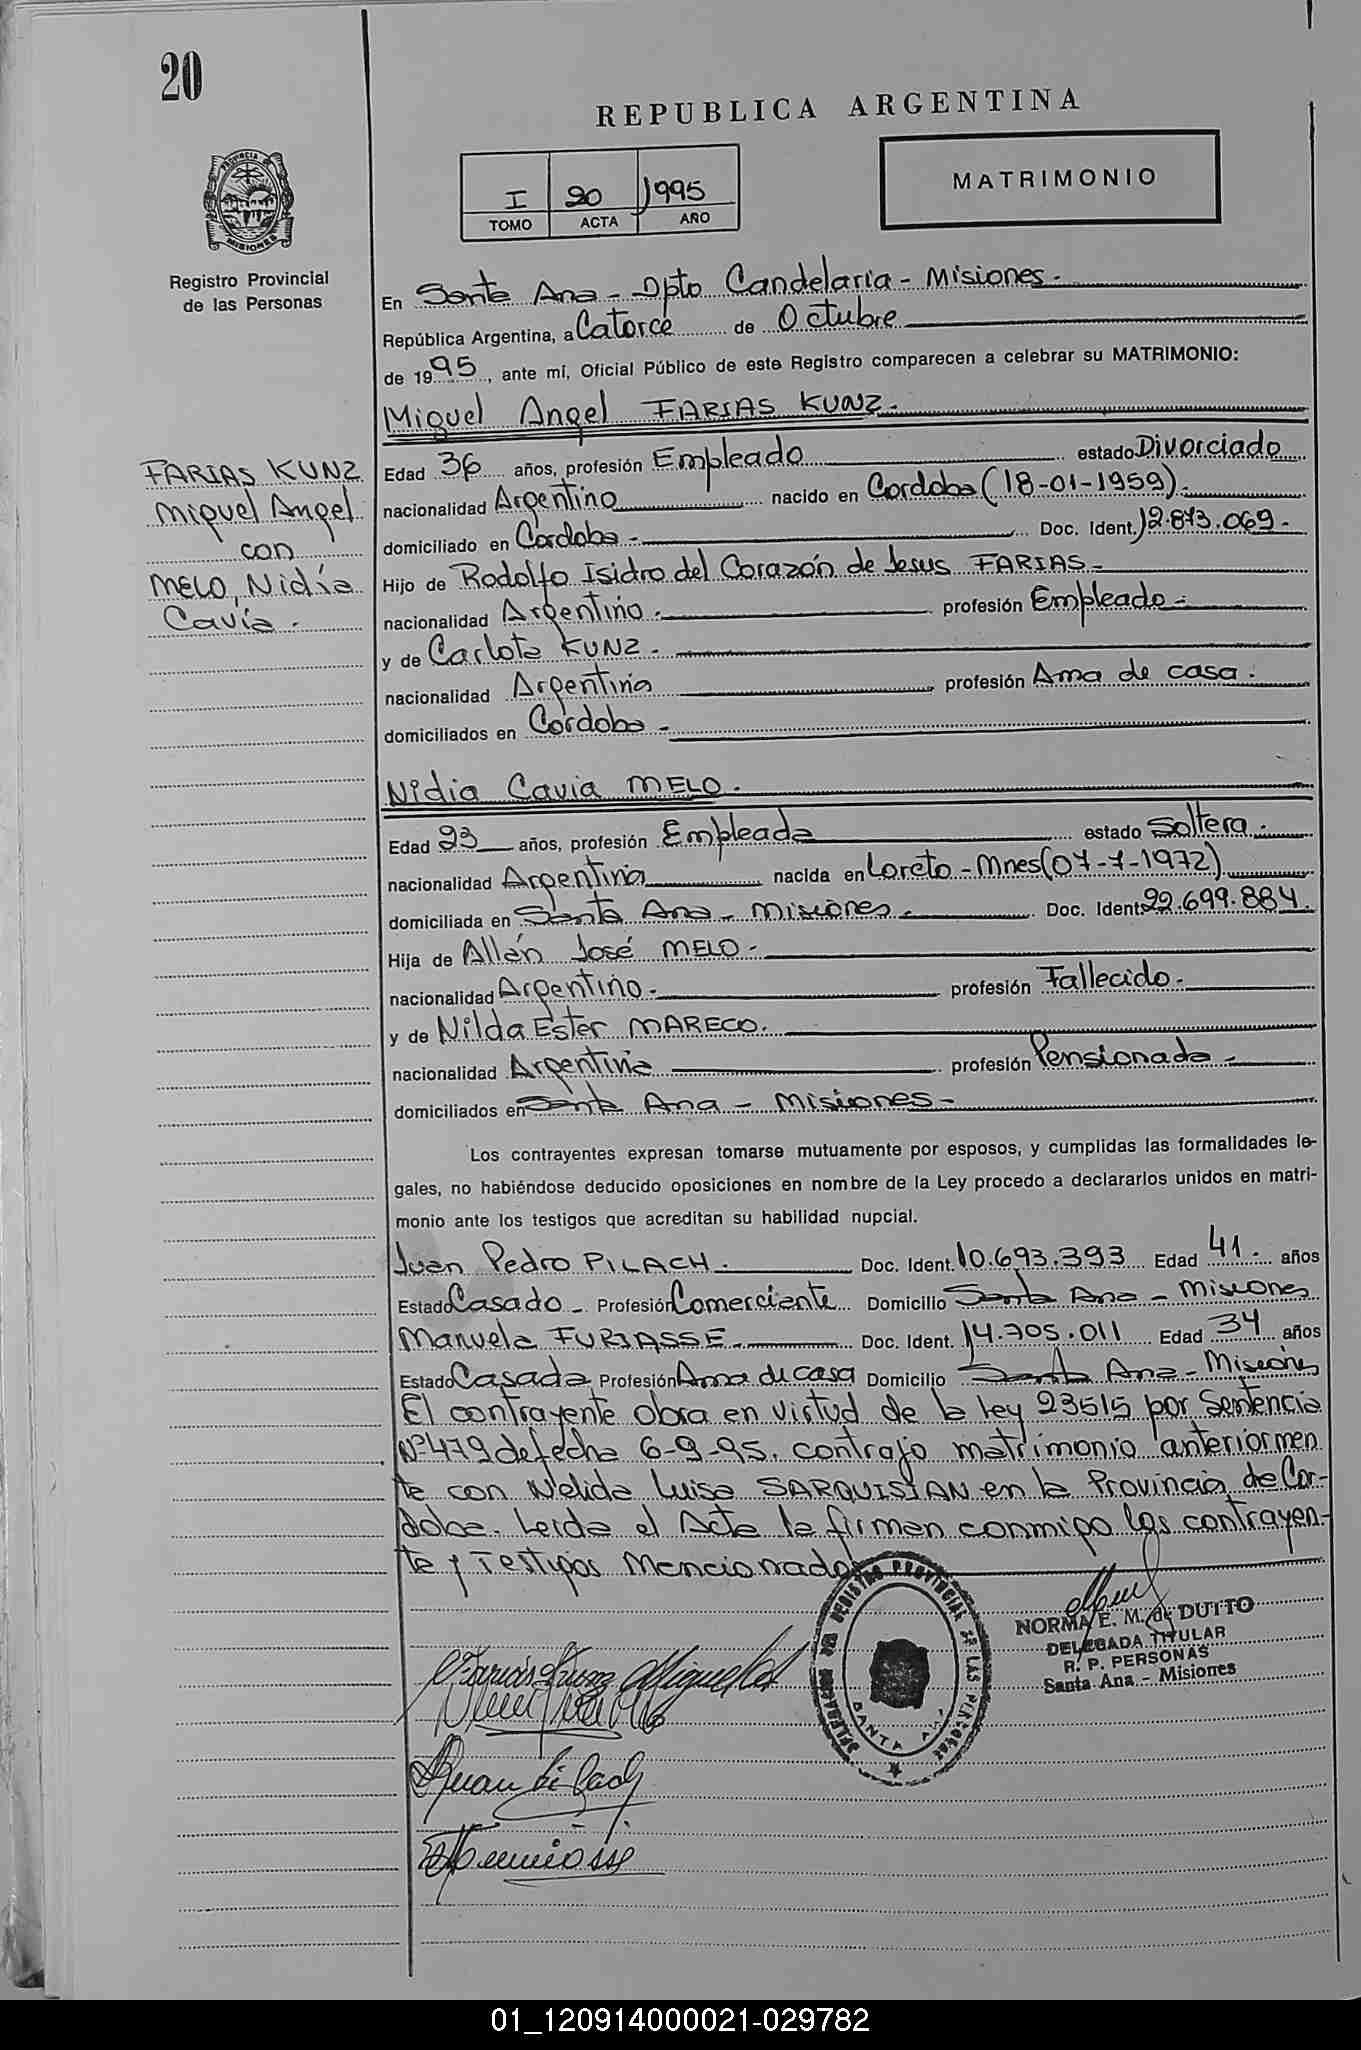 20
REPUBLICA ARGENTINA
I 20 1995
TOMO ACTA AÑO
MATRIMONIO
PROVINCIA DE
MISIONES
Registro Provincial
de las Personas
En Santa Ana - Dpto Candelaria - Misiones -
República Argentina, a Catorce de Octubre
de 1995, ante mí, Oficial Público de este Registro comparecen a celebrar su MATRIMONIO:
Miguel Angel FARIAS KUNZ.-
FARIAS KUNZ
Miguel Angel
con
MELO, Nidia
Cavia.-
Edad 36 años, profesión Empleado estado Divorciado
nacionalidad Argentino nacido en Cordoba (18-01-1959).
domiciliado en Cordoba - Doc. Ident. 12.873.069.-
Hijo de Rodolfo Isidro del Corazón de Jesus FARIAS -
nacionalidad Argentino.- profesión Empleado -
y de Carlota KUNZ.-
nacionalidad Argentina profesión Ama de casa.
domiciliados en Cordoba -
Nidia Cavia MELO.
Edad 23 años, profesión Empleada estado Soltera.-
nacionalidad Argentina nacida en Loreto - Mnes (07-7-1972)
domiciliada en Santa Ana - Misiones - Doc. Ident. 22.699.884.
Hija de Allán José MELO -
nacionalidad Argentino.- profesión Fallecido.-
y de Nilda Ester MARECO.
nacionalidad Argentina profesión Pensionada -
domiciliados en Santa Ana - Misiones -
Los contrayentes expresan tomarse mutuamente por esposos, y cumplidas las formalidades le-
gales, no habiéndose deducido oposiciones en nombre de la Ley procedo a declararlos unidos en matri-
monio ante los testigos que acreditan su habilidad nupcial.
Juan Pedro PILACH. Doc. Ident. 10.693.393 Edad 41. años
Estado Casado - Profesión Comerciante Domicilio Santa Ana - Misiones
Manuela FURIASSE. Doc. Ident. 14.705.011 Edad 34 años
Estado Casada Profesión Ama di casa Domicilio Santa Ana - Misiones
El contrayente obra en virtud de la ley 23515 por Sentencia
Nº 479 de fecha 6-9-95. contrajo matrimonio anteriormen
te con Nelida Luisa SARQUISIAN en la Provincia de Cor-
doba. Leida el Acta la firman conmigo los contrayen-
te y Testigos Mencionados
DELEGACION DEL REGISTRO PROVINCIAL DE LAS PERSONAS
SANTA ANA
NORMA E. M. de DUTTO
DELEGADA TITULAR
R. P. PERSONAS
Santa Ana - Misiones
Farias Kunz Miguel A
Juan Pilach
01_120914000021-029782